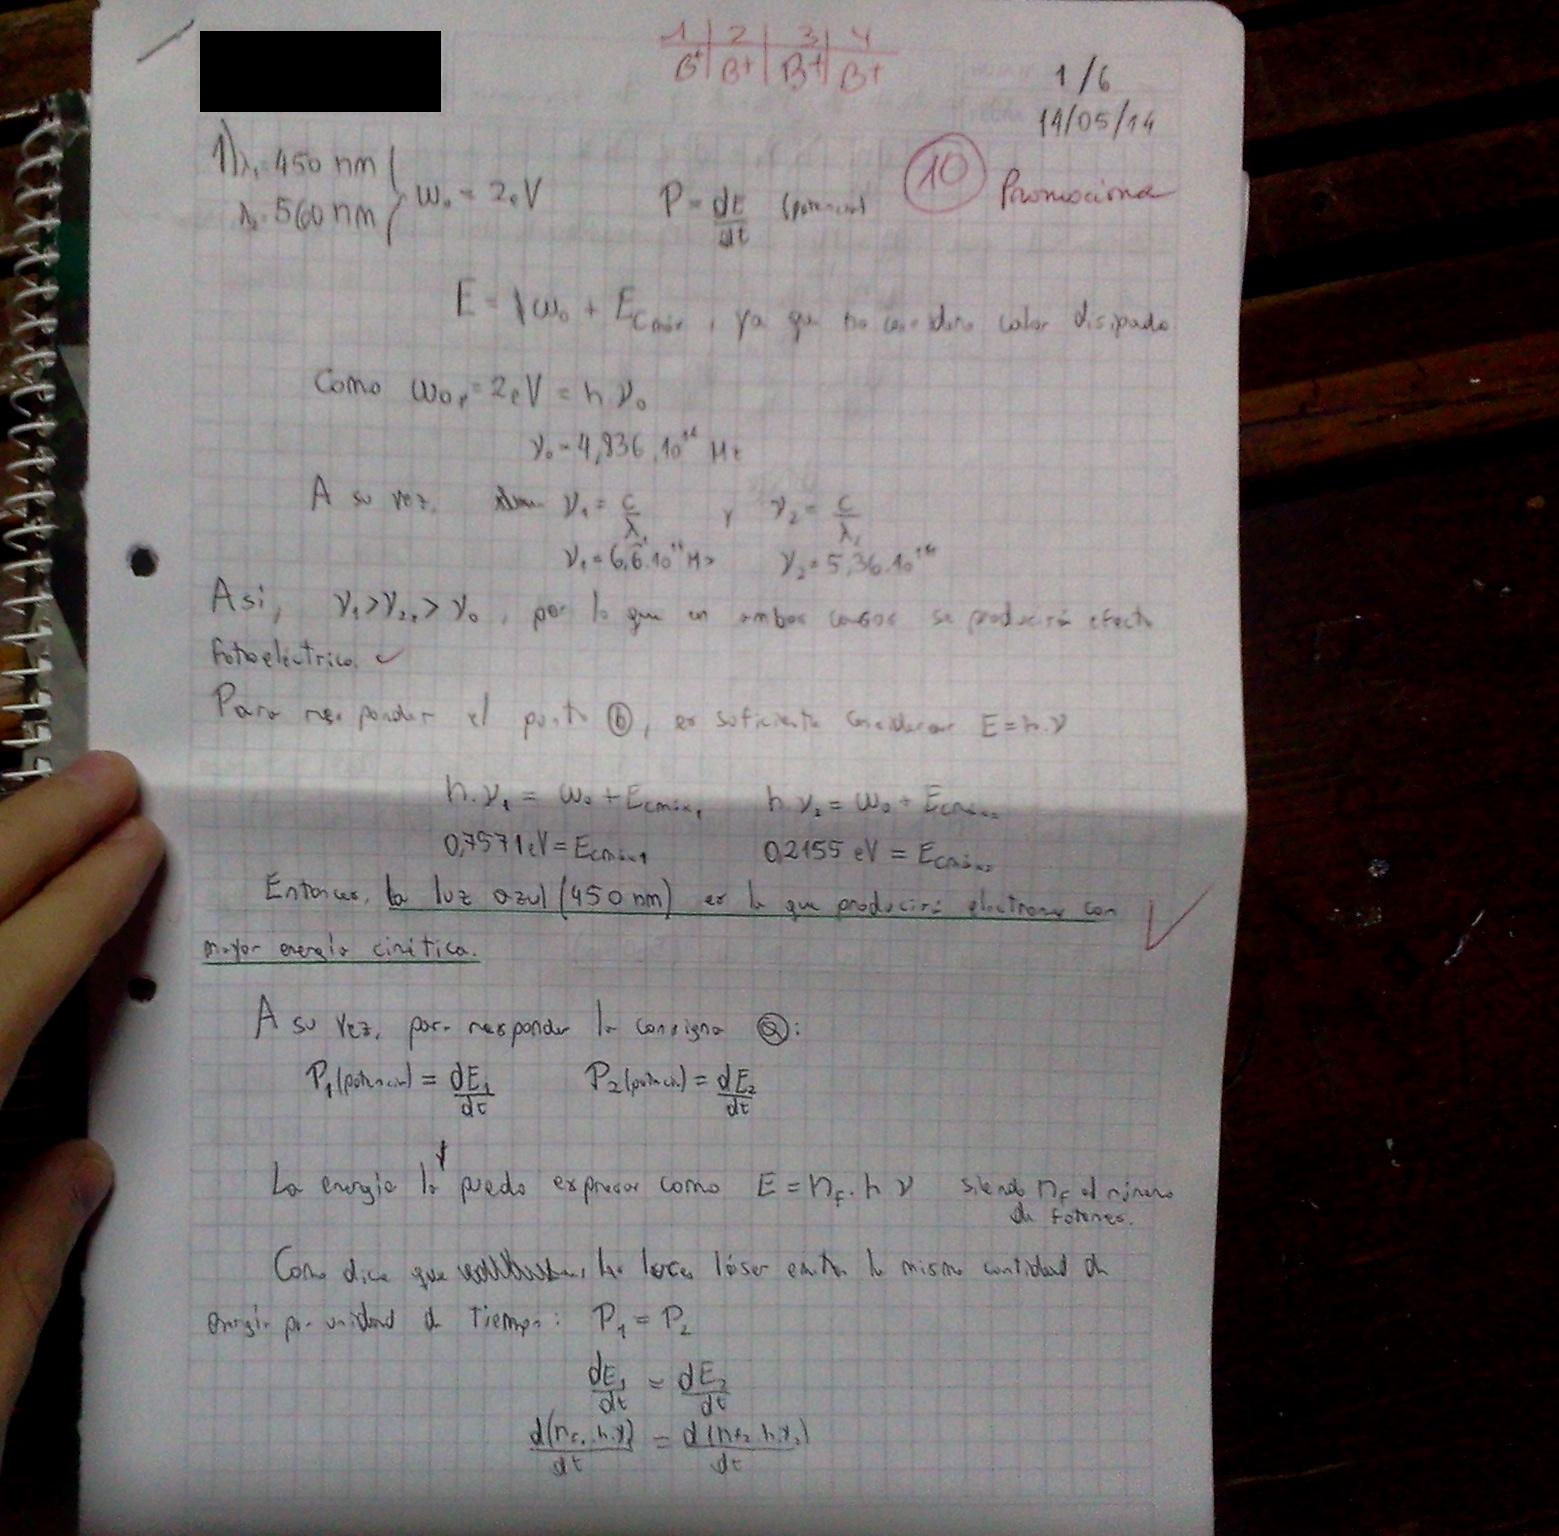 1 | 2 | 3 | 4
B+ | B+ | B+ | B+
1/6
14/05/14
1) λ₁=450 nm
λ₂=560 nm } ω₀ = 2eV P = dE/dt (potencia) 10 Promociona
E = ω₀ + Ecmáx, ya que no considero calor disipado
Como ω₀ = 2eV = h ν₀
ν₀ = 4,836.10¹⁴ Hz
A su vez, ν₁ = c/λ₁ y ν₂ = c/λ₂
ν₁ = 6,6.10¹⁴ Hz ν₂ = 5,36.10¹⁴
Asi, ν₁ > ν₂ > ν₀, por lo que en ambos casos se producirá efecto
fotoeléctrico.
Para responder el punto ⓑ, es suficiente considerar E = h.ν
h.ν₁ = ω₀ + Ecmáx₁ h.ν₂ = ω₀ + Ecmáx₂
0,7571 eV = Ecmáx₁ 0,2155 eV = Ecmáx₂
Entonces, la luz azul (450 nm) es la que producirá electrones con
mayor energía cinética.
A su vez, para responder la consigna ⓐ:
P₁(potencia) = dE₁/dt P₂(potencia) = dE₂/dt
Y
La energía la puedo expresar como E = n_F . h ν siendo n_F el número
de fotones.
Como dice que las luces láser emiten la misma cantidad de
energía por unidad de tiempo: P₁ = P₂
dE₁/dt = dE₂/dt
d(n_F₁.h.ν₁)/dt = d(n_F₂.h.ν₂)/dt